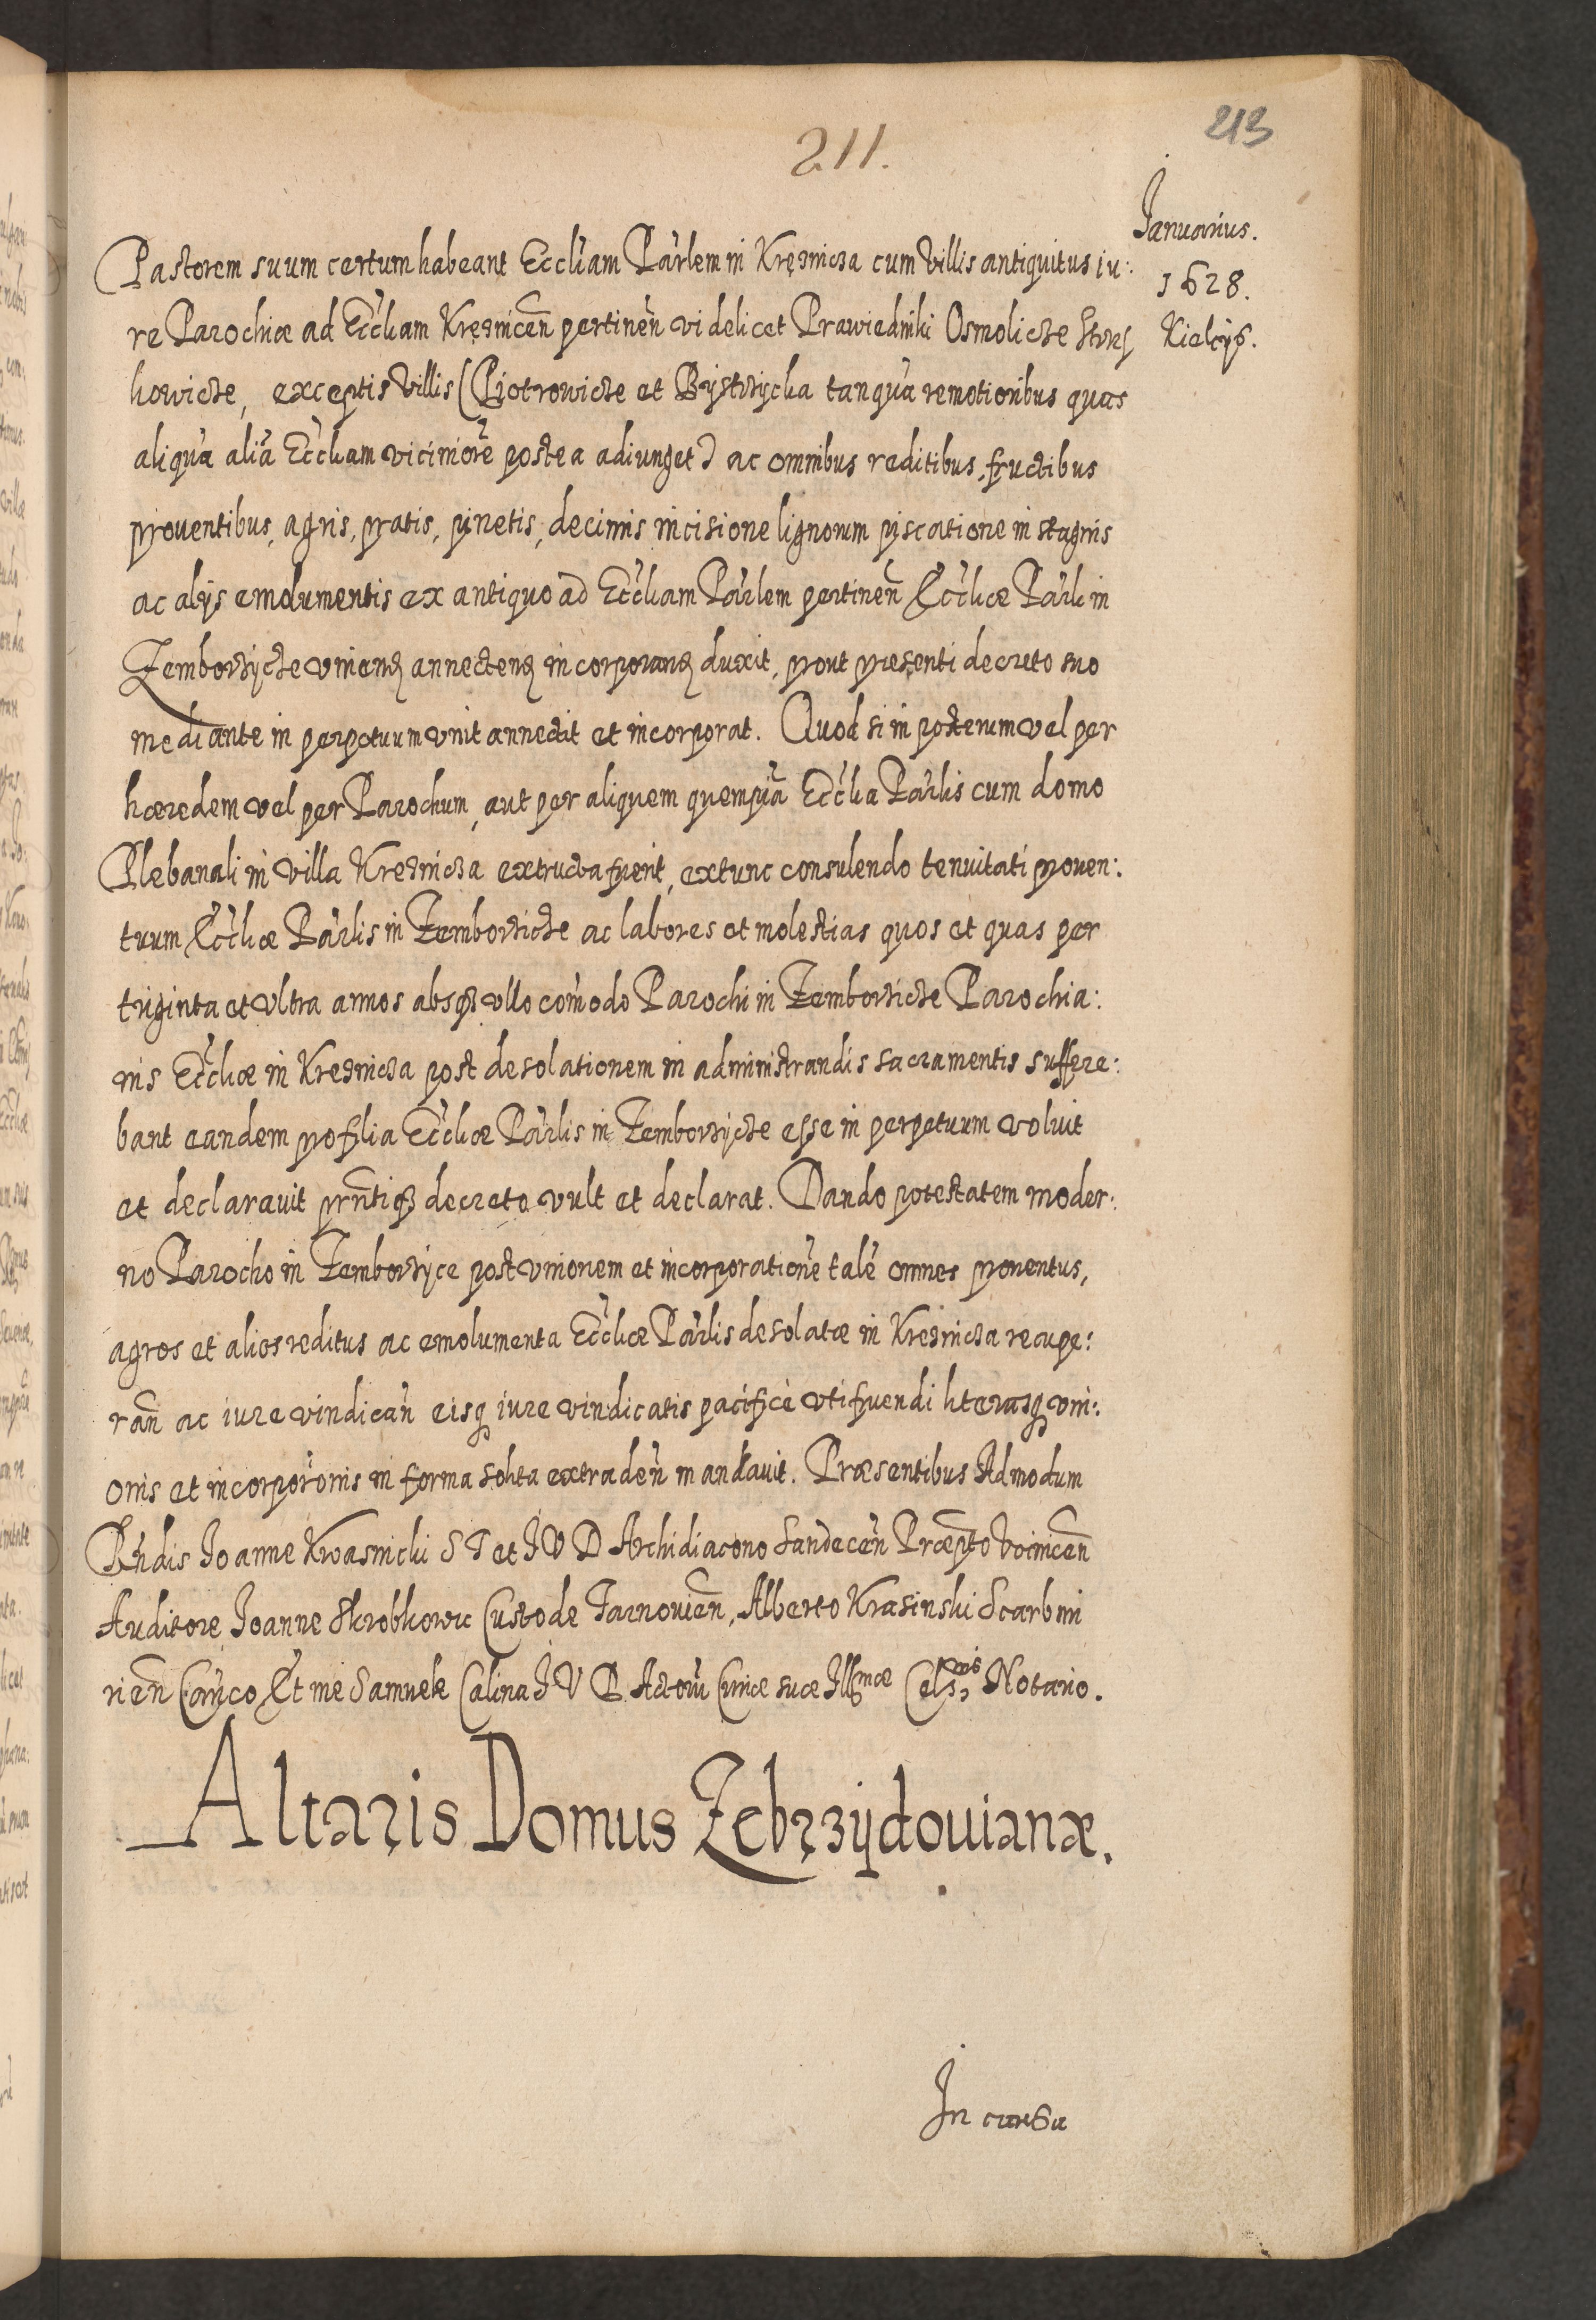 211.
213
Januarius.
1628.
Kielcijs.
Pastorem suum certum habeant Eccliam Parlem in Kręznicza cum villis antiquitus iu:
re Parochiæ ad Eccliam Kręznicen pertinen videlicet Prawiedniki Osmolicze Strzs
kowicze, exceptis villis (Piotrowicze et Bystrzycka tanqua remotioribus quas
aliqua alia Eccliam viciniore postea adiunget) ac omnibus reditibus, fructibus
prouentibus, agris, pratis, pinetis, decimis incisione lignorum piscatione in stagnis
ac alijs emolumentis ex antiquo ad Eccliam Parlem pertinen Eccliæ Parli in
Zemborzycze vniend annectend incorporand duxit, prout præsenti decreto suo
mediante in perpetuum vnit annectit et incorporat. Quod si in posterum vel per
hæredem vel per Parochum, aut per aliquem quempia Ecclia Parlis cum domo
Plebanali in villa Kreznicza extructa fuerit, extunc consulendo tenuitati prouen:
tuum Eccliæ Parlis in Zemborzicze ac labores et molestias quos et quas per
triginta et vltra annos absq vllo comodo Parochi in Zemborzicze Parochia:
nis Eccliæ in Kreznicza post desolationem in administrandis sacramentis suffere:
bant eandem pro filia Eccliæ Parlis in Zemborzycze esse in perpetuum voluit
et declarauit prntiq decreto vult et declarat. Dando potestatem moder:
no Parocho in Zemborzyce post vnionem et incorporatione tale omnes prouentus,
agros et alios reditus ac emolumenta Eccliæ Parlis desolatæ in Kreznicza recupe:
ran ac iure vindican eisq iure vindicatis pacifice vti fruendi literasq vni:
onis et incorporonis in forma solita extraden mandauit. Præsentibus Admodum
Rndis Joanne Kwasnicki S T et J V D Archidiacono Sandecen Præpto
Auditore Joanne Skrobkowic Custode Tarnouien, Alberto Krasinski Scarbmi
rien Canco, Et me Samuele Calina J V D Actoru Curiæ suæ Illmæ Cels Notario.
Altaris Domus Zebrzydouianæ.
In cursu